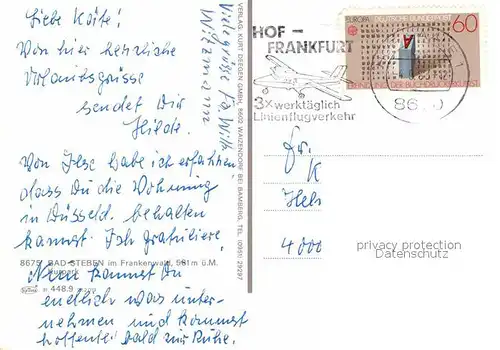 Liebe Käte!
Von hier herzliche
Urlaubsgrüsse
sendet Dir
Hilde.
Von Ilse habe ich erfahren
dass Du die Wohnung
in Düsseld. behalten
kannst. Ich gratuliere!
Nun kannst Du
endlich was unter-
nehmen und kommst
hoffentl. bald zur Ruhe.
8675 BAD STEBEN im Frankenwald, 581 m ü.M.
Kurpark
448.9
Viele Grüsse
VERLAG KURT DEEGEN GMBH, 8602 WAIZENDORF BEI BAMBERG, TEL. (0951) 29297
HOF -
FRANKFURT
3x werktäglich
Linienflugverkehr
EUROPA DEUTSCHE BUNDESPOST 60
ERFINDUNG DER BUCHDRUCKERKUNST
86
Fr.
K
Heb
4000
privacy protection
Datenschutz